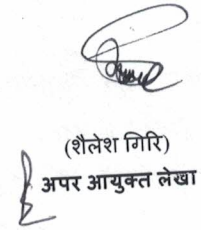 (शैलेश गिरि)
अपर आयुक्त लेखा